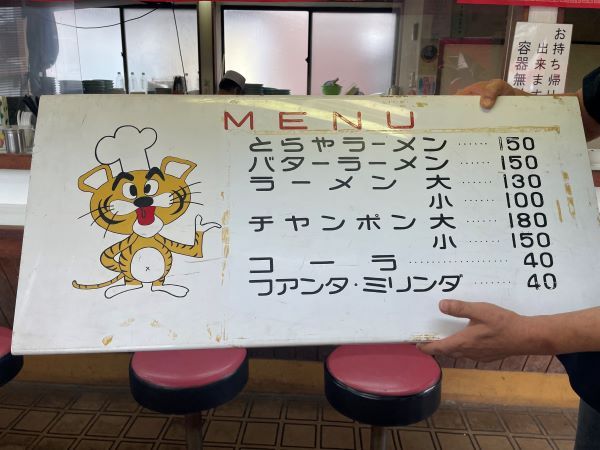 お持ち帰り
出来ます
容器無
MENU
とらやラーメン……150
バターラーメン……150
ラーメン 大……130
小……100
チャンポン 大……180
小……150
コーラ……40
ファンタ・ミリンダ……40